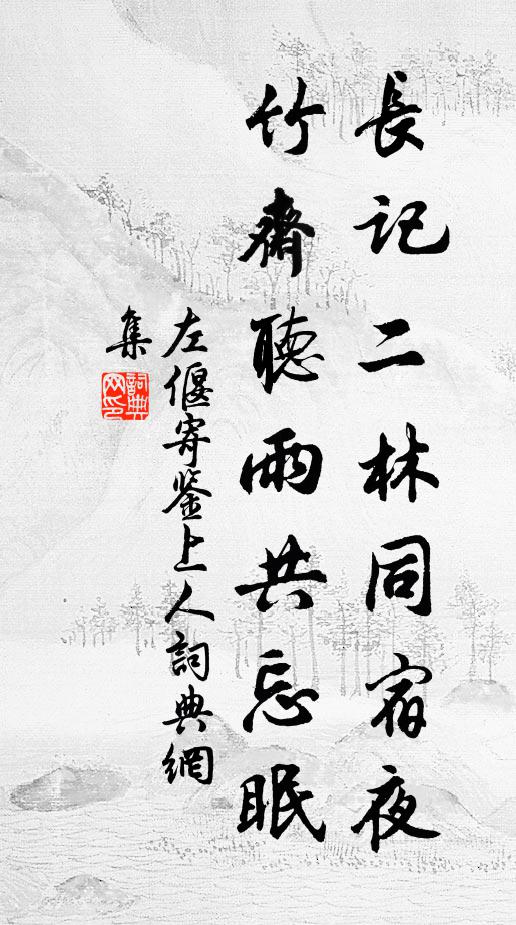 長記二林同宿夜
竹齋聽雨共忘眠
左偃寄鉴上人詞典網
集
詞典
网印